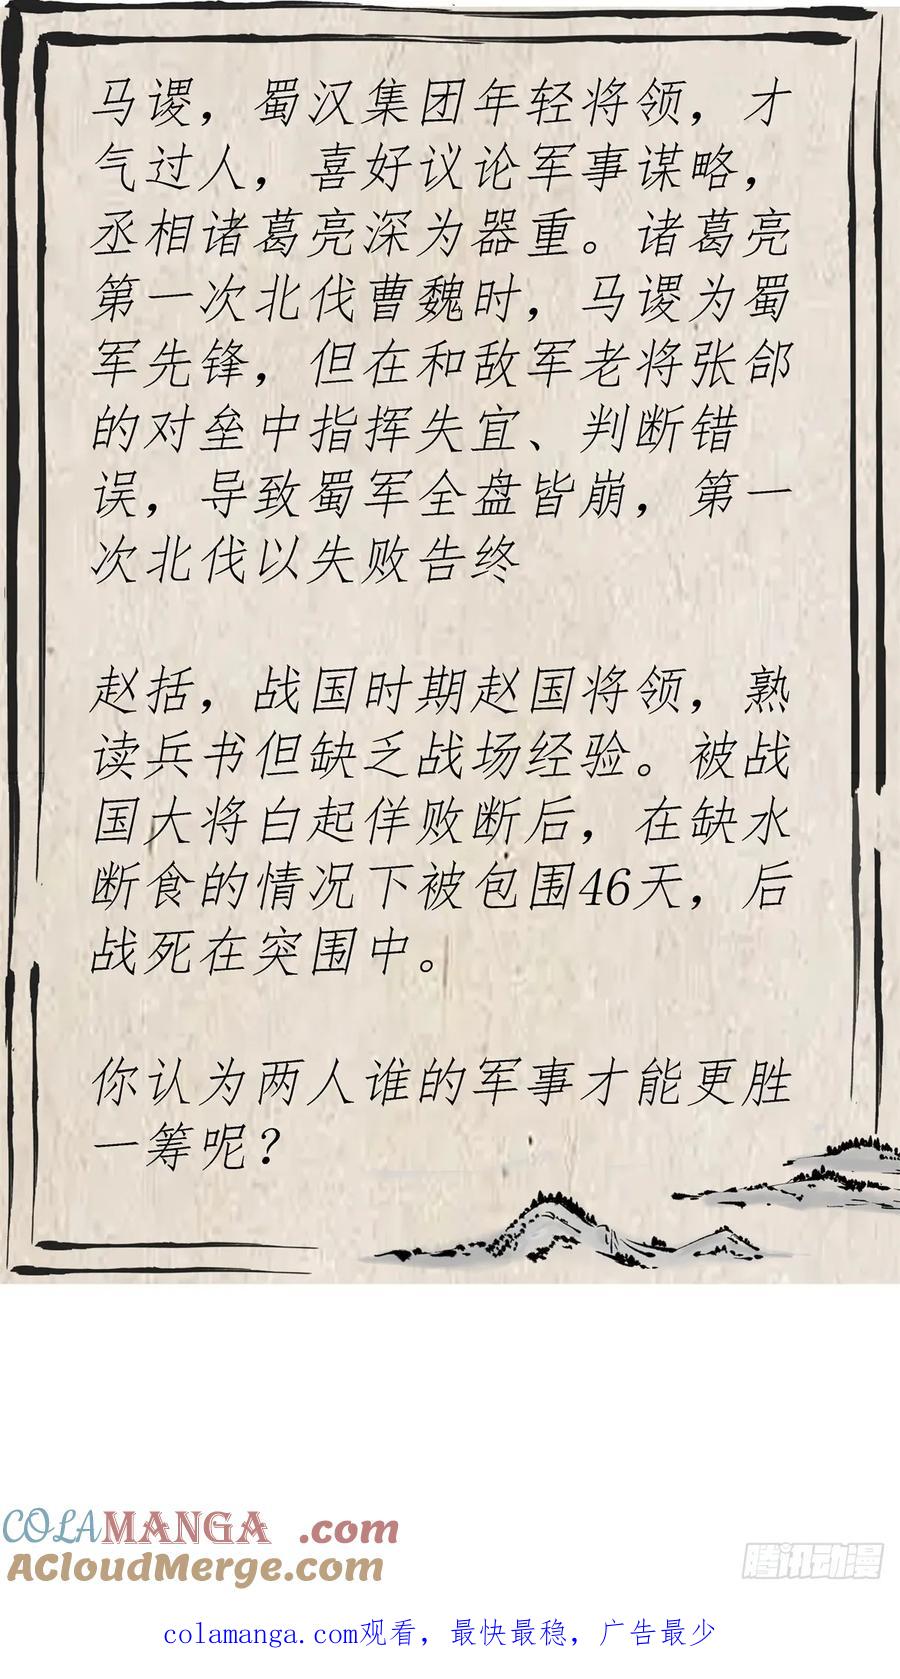 马谡，蜀汉集团年轻将领，才
气过人，喜好议论军事谋略，
丞相诸葛亮深为器重。诸葛亮
第一次北伐曹魏时，马谡为蜀
军先锋，但在和敌军老将张郃
的对垒中指挥失宜、判断错
误，导致蜀军全盘皆崩，第一
次北伐以失败告终
赵括，战国时期赵国将领，熟
读兵书但缺乏战场经验。被战
国大将白起佯败断后，在缺水
断食的情况下被包围46天，后
战死在突围中。
你认为两人谁的军事才能更胜
一筹呢？
COLAMANGA.com
ACloudMerge.com
腾讯动漫
colamanga.com观看，最快最稳，广告最少